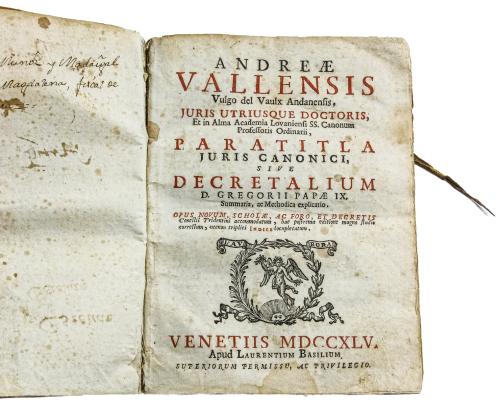 ANDREÆ
VALLENSIS
Vulgo del Vaulx Andanensis,
JURIS UTRIUSQUE DOCTORIS,
Et in Alma Academia Lovaniensi SS. Canonum
Professoris Ordinarii,
PARATITLA
JURIS CANONICI,
SIVE
DECRETALIUM
D. GREGORII PAPÆ IX.
Summaria, ac Methodica explicatio.
OPUS NOVUM, SCHOLÆ, AC FORO, ET DECRETIS
Concilii Tridentini accommodatum, hac postrema editione magno studio
correctum, necnon triplici INDICE locupletatum.
VENETIIS MDCCXLV.
Apud LAURENTIUM BASILIUM,
SUPERIORUM PERMISSU, AC PRIVILEGIO.